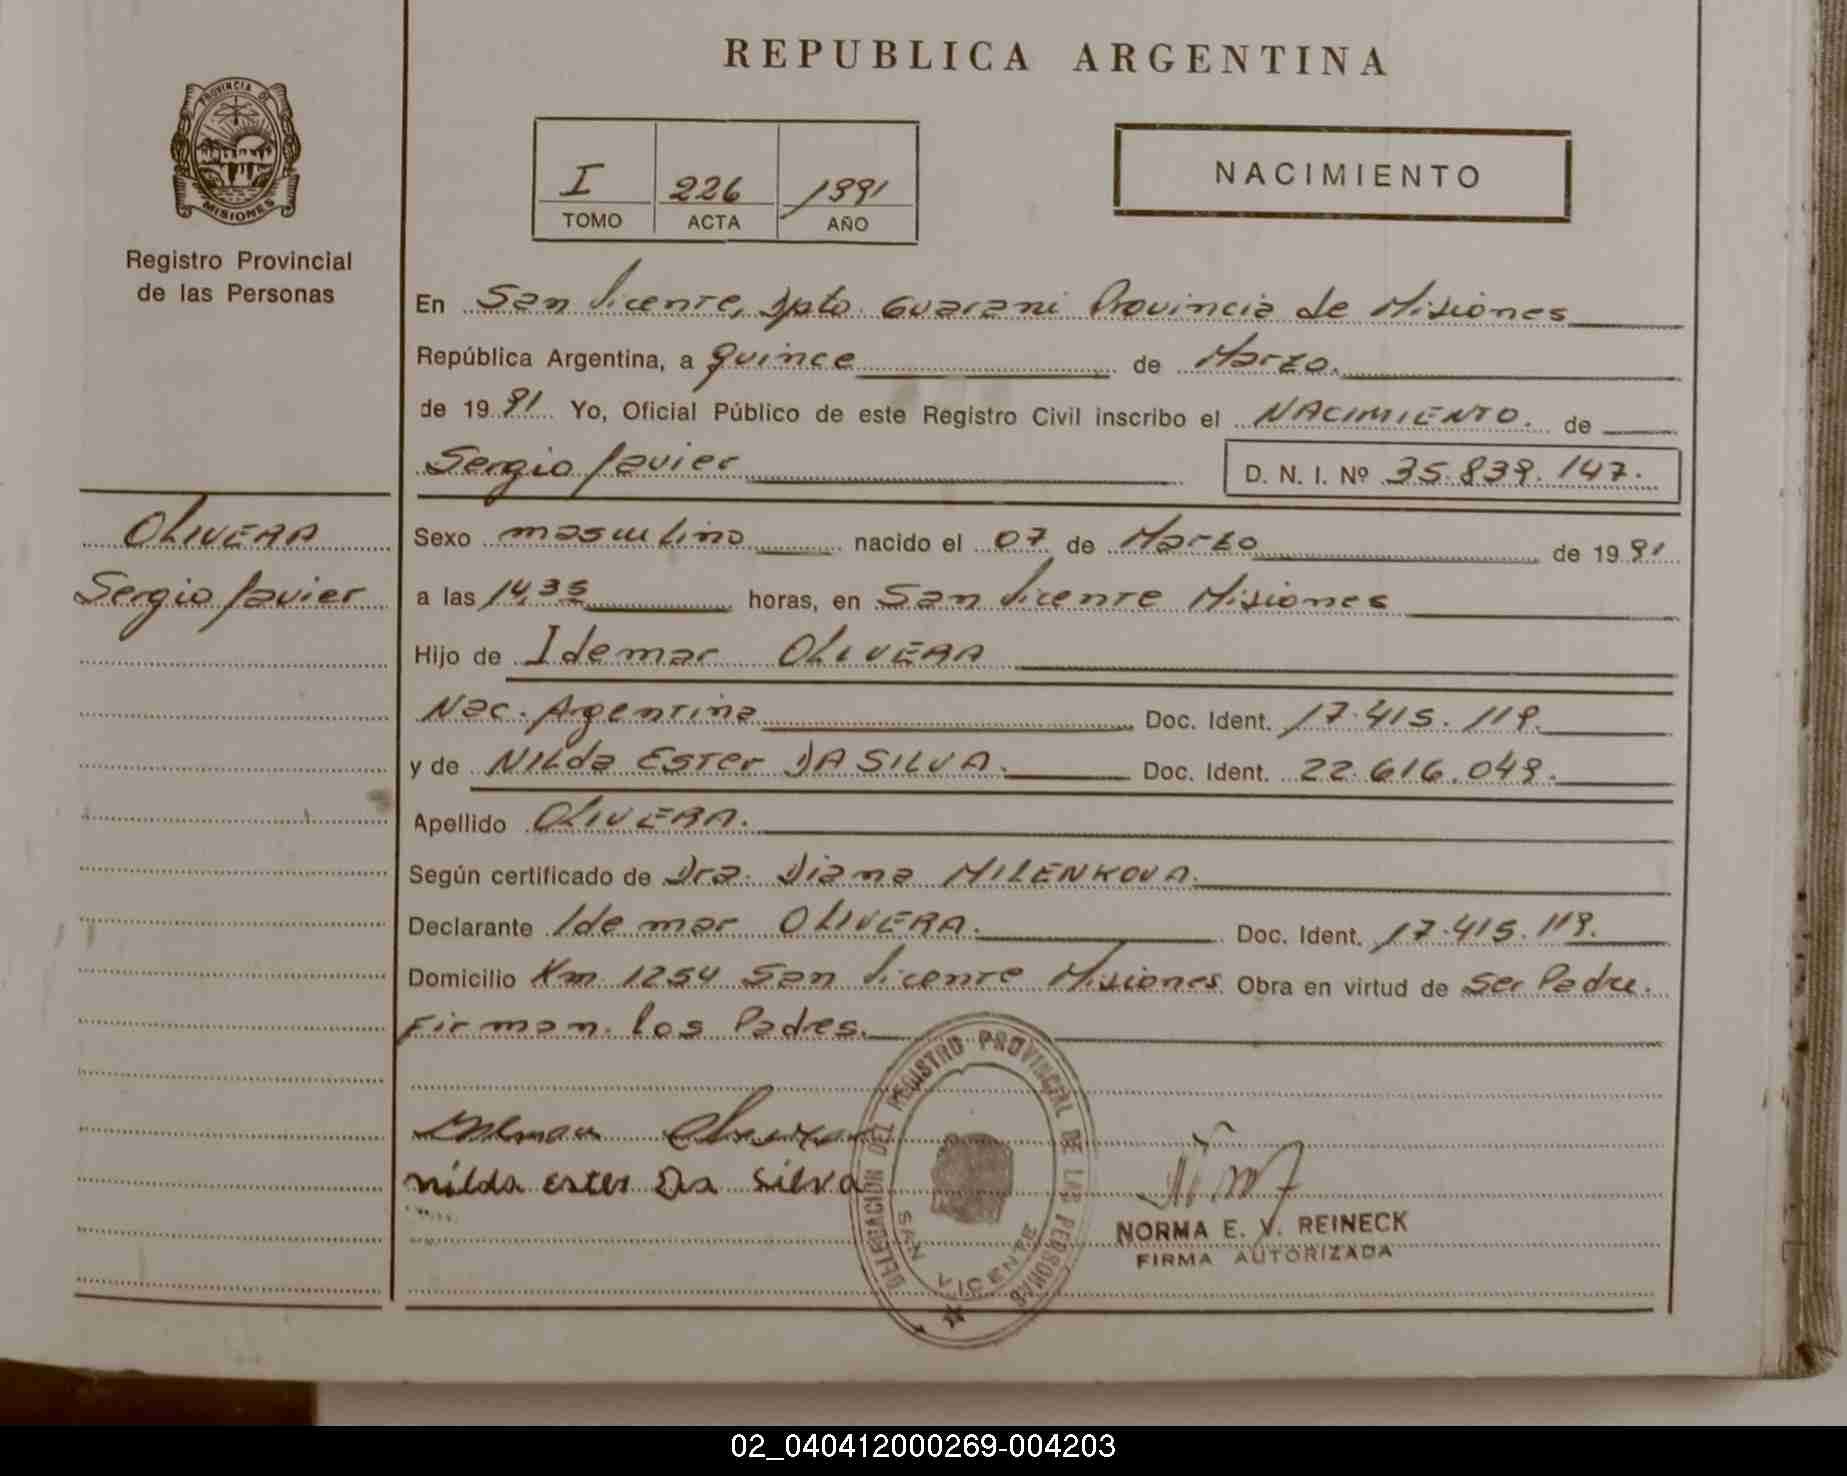 REPUBLICA ARGENTINA
PROVINCIA DE
MISIONES
Registro Provincial
de las Personas
I 226 1991
TOMO ACTA AÑO
NACIMIENTO
En San Vicente, Dpto. Guarani Provincia de Misiones
República Argentina, a quince de Marzo.
de 19 91 Yo, Oficial Público de este Registro Civil inscribo el NACIMIENTO. de
Sergio Javier D. N. I. Nº 35.839.147.
OLIVERA
Sergio Javier
Sexo masculino nacido el 07 de Marzo de 19 91
a las 14,35 horas, en San Vicente Misiones
Hijo de Idemar OLIVERA
Nac. Argentina Doc. Ident. 17.415.119.
y de Nilda Ester DA SILVA. Doc. Ident. 22.616.049.
Apellido OLIVERA.
Según certificado de Dra. Diana MILENKOVA.
Declarante Idemar OLIVERA. Doc. Ident. 17.415.119.
Domicilio Km 1254 San Vicente Misiones Obra en virtud de ser Padre.
Firman los Padres.
nilda ester Da Silva
DELEGACION DEL REGISTRO PROVINCIAL DE LAS PERSONAS
SAN VICENTE
NORMA E. V. REINECK
FIRMA AUTORIZADA
02_040412000269-004203